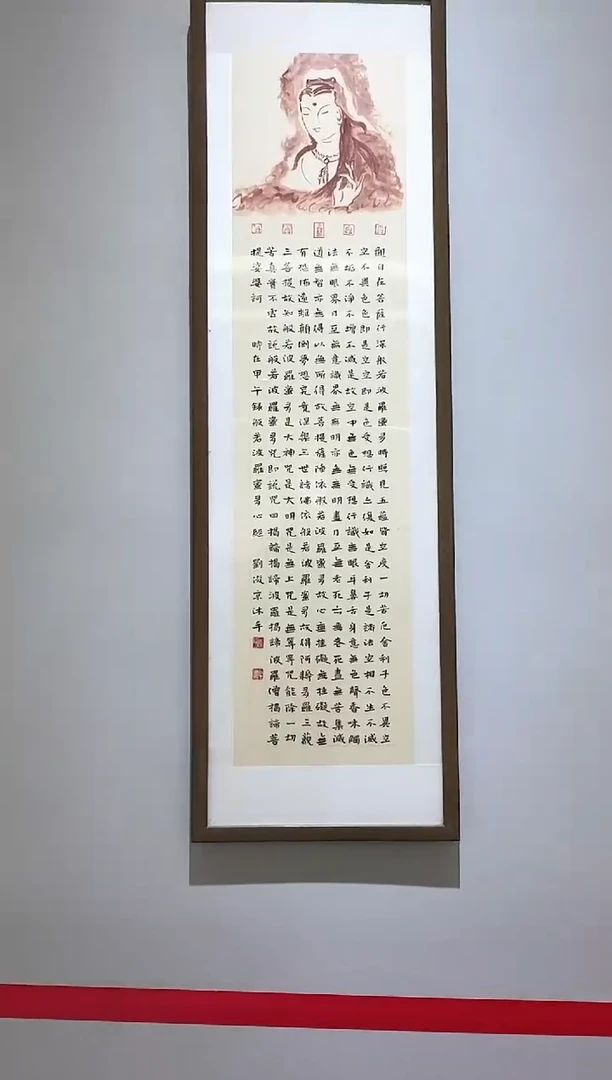 觀自在菩薩行深般若波羅蜜多時照見五蘊皆空度一切苦厄舍利子色不異空
空不異色色即是空空即是色受想行識亦復如是舍利子是諸法空相不生不滅
不垢不淨不增不減是故空中無色無受想行識無眼耳鼻舌身意無色聲香味觸
法無眼界乃至無意識界無無明亦無無明盡乃至無老死亦無老死盡無苦集滅
道無智亦無得以無所得故菩提薩埵依般若波羅蜜多故心無挂礙無挂礙故無
有恐怖遠離顛倒夢想究竟涅槃三世諸佛依般若波羅蜜多故得阿耨多羅三藐
三菩提故知般若波羅蜜多是大神咒是大明咒是無上咒是無等等咒能除一切
苦真實不虛故說般若波羅蜜多咒即說咒曰揭諦揭諦波羅揭諦波羅僧揭諦菩
提娑婆訶 時在甲午錄般若波羅蜜多心經 劉俊京沐手